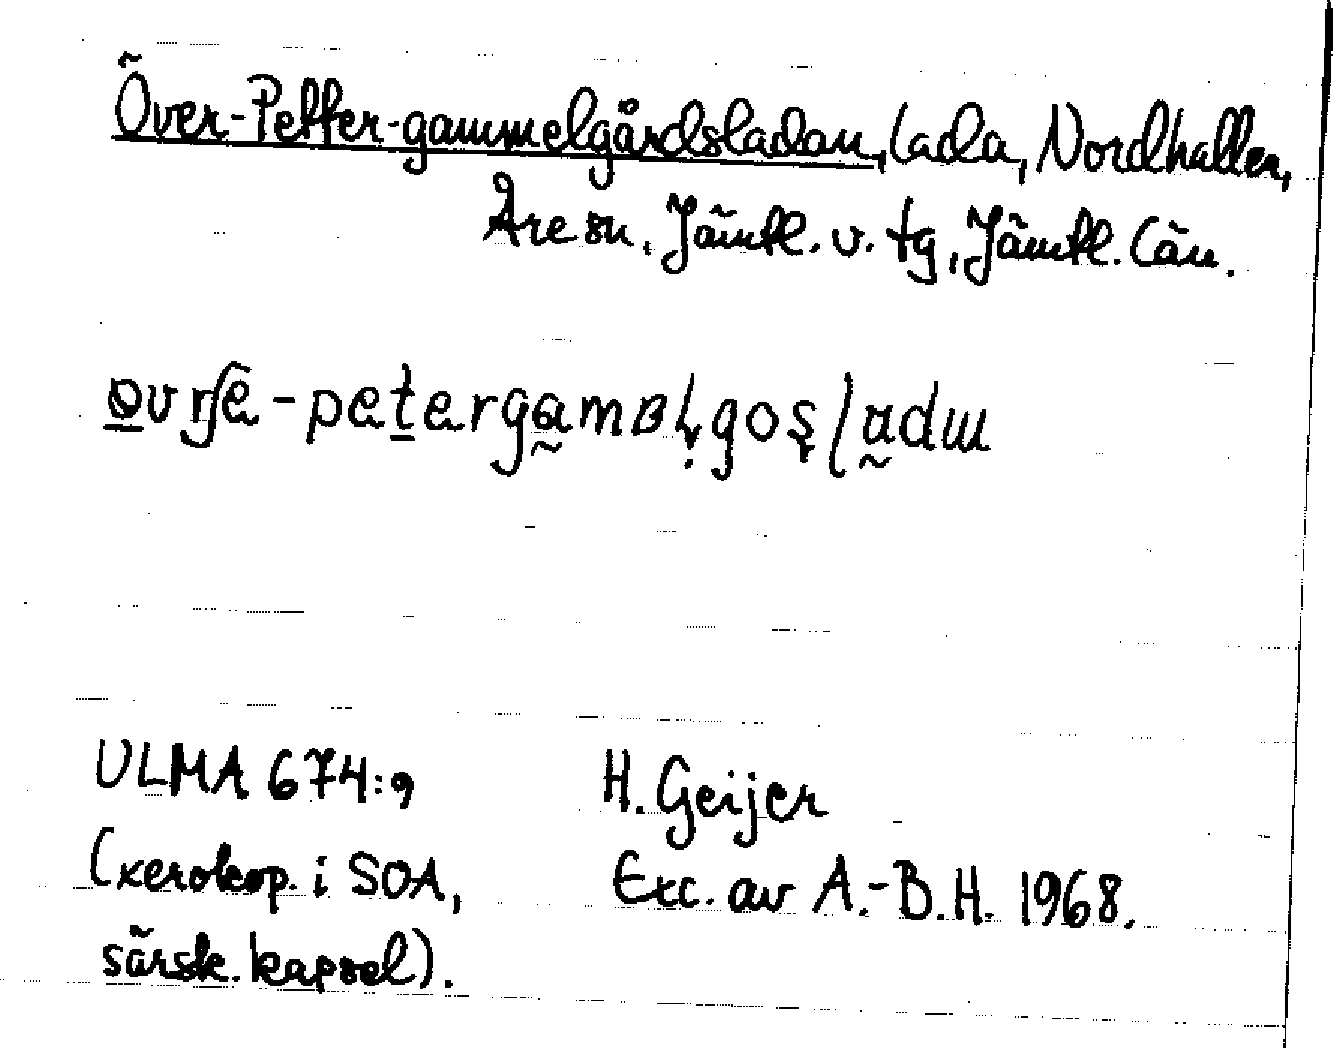 Över-Petter-gammelgårdsladan, lada, Nordhallen,
Åre sn, Jämtl. v. tg, Jämtl. län.
ULMA 674:9
H. Geijer
(xerokop. i SOA,
Exc. av A.-B.H. 1968.
särsk. kapsel).